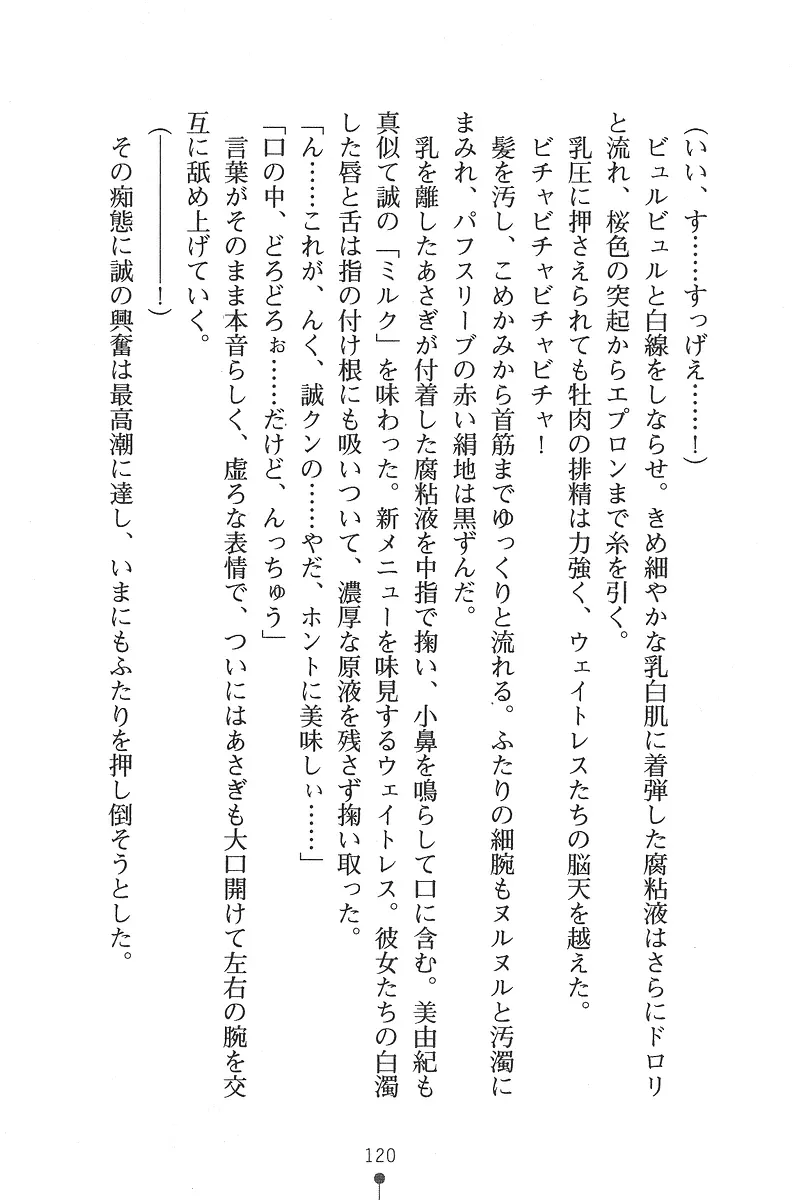 (いい、す……すっげえ……！)
　ビュルビュルと白線をしならせ。きめ細やかな乳白肌に着弾した腐粘液はさらにドロリ
と流れ、桜色の突起からエプロンまで糸を引く。
　乳圧に押さえられても牡肉の排精は力強く、ウェイトレスたちの脳天を越えた。
　ビチャビチャビチャビチャ！
　髪を汚し、こめかみから首筋までゆっくりと流れる。ふたりの細腕もヌルヌルと汚濁に
まみれ、パフスリーブの赤い絹地は黒ずんだ。
　乳を離したあさぎが付着した腐粘液を中指で掬い、小鼻を鳴らして口に含む。美由紀も
真似て誠の「ミルク」を味わった。新メニューを味見するウェイトレス。彼女たちの白濁
した唇と舌は指の付け根にも吸いついて、濃厚な原液を残さず掬い取った。
「ん……これが、んく、誠クンの……やだ、ホントに美味しぃ……」
「口の中、どろどろぉ……だけど、んっちゅう」
　言葉がそのまま本音らしく、虚ろな表情で、ついにはあさぎも大口開けて左右の腕を交
互に舐め上げていく。
(――――――！)
　その痴態に誠の興奮は最高潮に達し、いまにもふたりを押し倒そうとした。
120